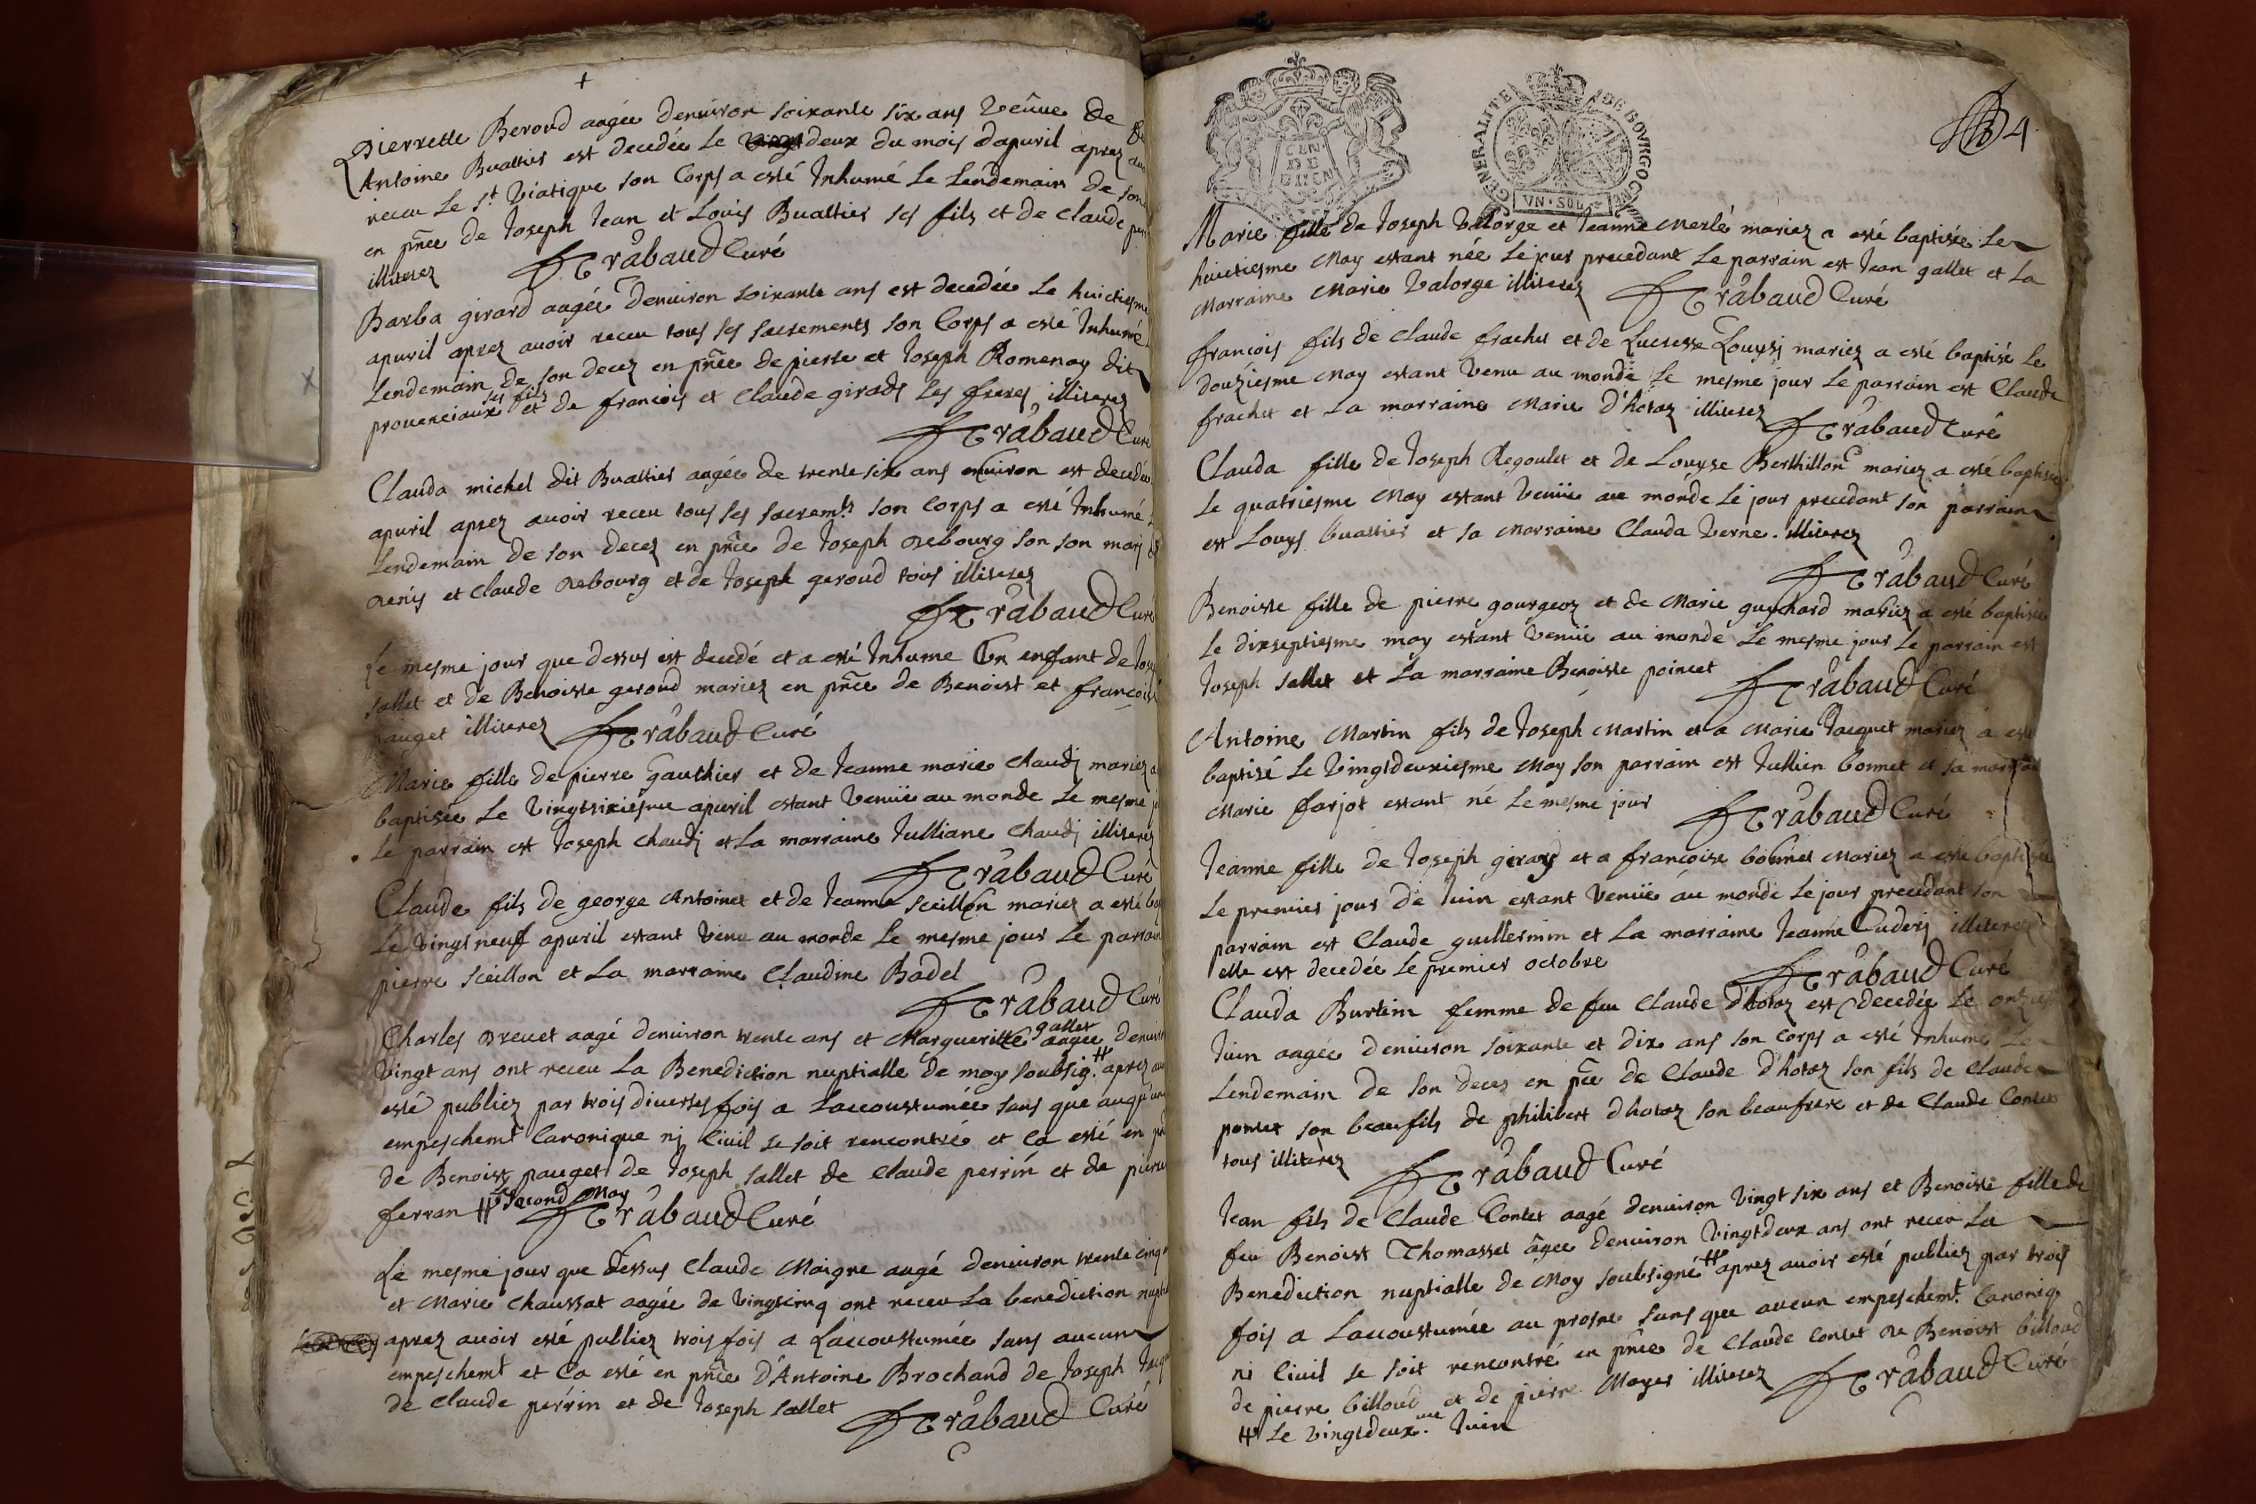 Pierrette Beroud aagée denuiron soixante six ans veûue de
Antoine Buattier est decedée le deux du mois dapuril aprez
receu le st Viatique son Corps a esté Inhumé le Lendemain de son
en pñce de Joseph Jean et Louis Buattier ses fils et de claude
illiterez Trabaud Curé
Barba girard aagée denuiron soixante ans est decedée le huictiesme
apuril aprez auoir receu tous ses sacrements son Corps a esté Inhumé
Lendemain de son decez en pñce de pierre et Joseph Romenay dit
prouenciaux ses fils et de francois et claude girads ses freres illiterez
Trabaud Curé
Clauda michel dit Buattier aagée de trente six ans enuiron est decedée
apuril aprez auoir receu tous ses sacremts son Corps a esté Inhumé
Lendemain de son decez en pñce de Joseph debourg son son marj
denis et claude debourg et de Joseph geroud tous illiterez
Trabaud Curé
Le mesme jour que dessus est decedé et a esté Inhume Un enfant de
sallet et de Benoiste geroud mariez en pñce de Benoist et francois
pauget illiterez Trabaud Curé
Marie fille de pierre Gauthier et de Jeanne marie chaudj mariez
baptisée le Vingtsixiesme apuril estant Venüe au monde le mesme
le parrain est Joseph chaudj et La marraine Julliane chaudj illiterez
Trabaud Curé
Claude fils de george Antoinet et de Jeanne sceillon mariez a esté
le Vingt neuf apuril estant Venu au monde le mesme jour le parrain
pierre sceillon et La marraine Claudine Badel
Trabaud Curé
Charles breuet aagé denuiron trente ans et Margueritte gallet aagée
Vingt ans ont receu La Benediction nuptialle de moy soubsig. # aprez
esté publiez par trois diuerses fois a Laccoustumée sans que auqu'un
empeschemt Canonique nj Ciuil se soit rencontré et Ca esté en
de Benoist pauget de Joseph sallet de claude perrin et de pierre
ferran # le second May Trabaud Curé
Le mesme jour que dessus Claude Maigre aagé denuiron trente cinq
et Marie chaussat aagée de Vingtcinq ont receu La benediction
aprez auoir esté publiez trois fois a Laccoustumée sans aucun
empeschemt et Ca esté en pñce d'Antoine Brochand de Joseph
de Claude perrin et de Joseph sallet Trabaud Curé
CEN
DE
GENERALITE DE BOURGOGNE
VN·SOL
4
Marie fille de Joseph Valorge et Jeanne Merle mariez a esté baptisée le
huictiesme May estant née le jour precedant Le parrain est Jean gallet et La
Marraine Marie Valorge illiterez Trabaud Curé
francois fils de claude frachet et de Lucresse Louysj mariez a esté baptisé le
douziesme May estant Venu au monde le mesme jour Le parrain est Claude
frachet et La marraine Marie d'hotaz illiterez Trabaud Curé
Clauda fille de Joseph Regoulet et de Louyse Berthillon mariez a esté baptisée
le quatriesme May estant Venüe au monde le jour precedant son parrain
est Louys buattier et sa Marraine Clauda Verne. illiterez
Trabaud Curé
Benoiste fille de pierre gourgeoz et de Marie guychard mariez a esté baptisée
le dixseptiesme may estant Venüe au monde le mesme jour le parrain est
Joseph sallet et La marraine Benoiste poincet Trabaud Curé
Antoine Martin fils de Joseph Martin et a Marie Jacquet mariez a esté
baptisé le Vingtdeuxiesme May son parrain est Jullien bonnet et sa
Marie farjot estant né le mesme jour Trabaud Curé
Jeanne fille de Joseph girard et a francoise bonnet Mariez a esté baptisée
le premier jour de Juin estant Venüe au monde le jour precedant son
parrain est Claude guillermin et La marraine Jeanne Cuderj illiterez
elle est decedée le premier octobre Trabaud Curé
Clauda Burtin femme de feu Claude d'hotaz est decedée le
Juin aagée denuiron soixante et dix ans son corps a esté Inhumé
Lendemain de son decez en pñce de Claude d'hotaz son fils de Claude
pontet son beaufils de philibert dhotaz son beaufrere et de Claude Contet
tous illiterez Trabaud Curé
Jean fils de Claude Contet aagé denuiron Vingt six ans et Benoiste fille de
feu Benoist Thomasset âgee denuiron Vingtdeux ans ont receu La
Benediction nuptialle de Moy soubsigné # aprez auoir esté publiez par trois
fois a Laccoustumée au prosne sans que aucun empeschemt Canoniq
ni Ciuil se soit rencontré en pñce de Claude contet de Benoist billoud
de pierre billoud et de pierre Mayer illiterez Trabaud Curé
# Le Vingtdeuxme Juin